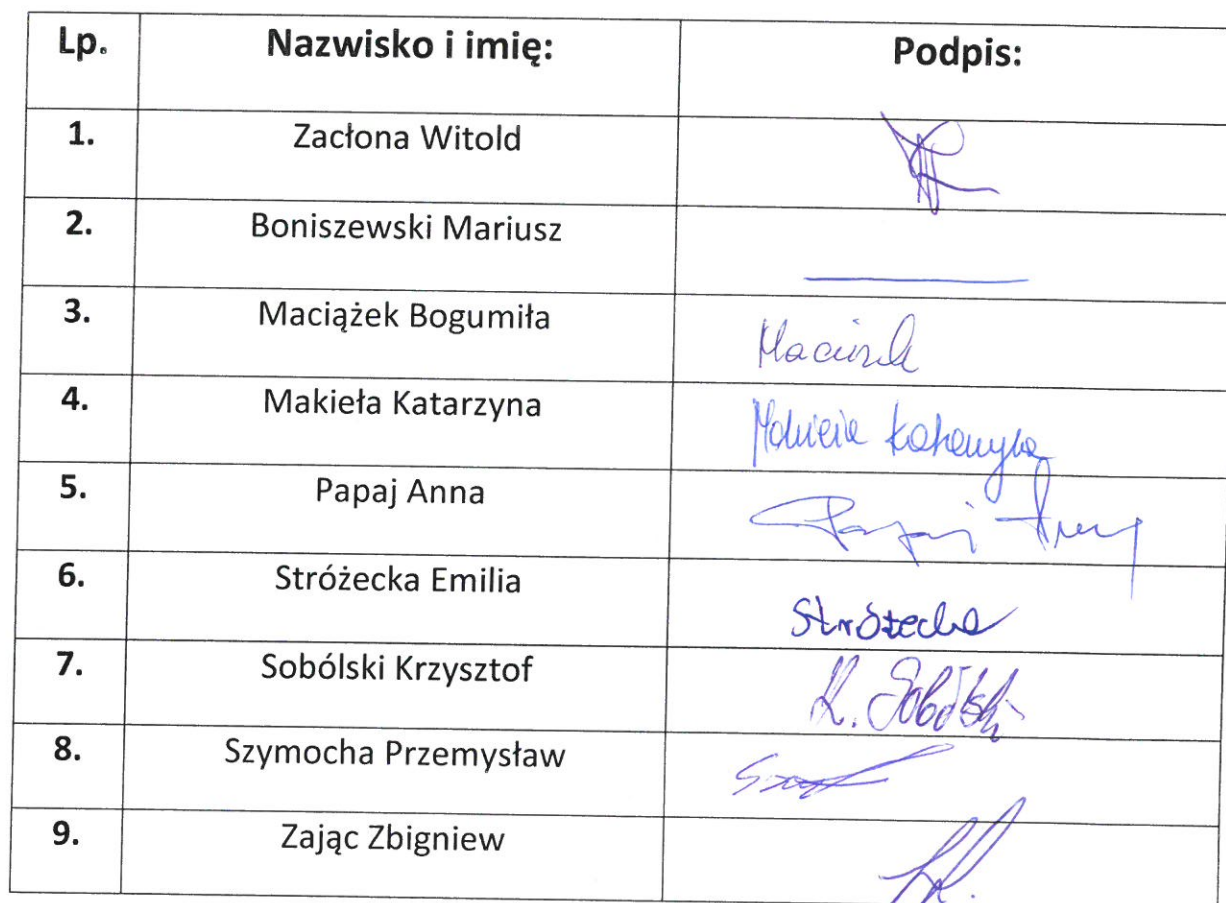 Lp. Nazwisko i imię: Podpis:
1. Zacłona Witold
2. Boniszewski Mariusz
3. Maciążek Bogumiła
4. Makieła Katarzyna
5. Papaj Anna Papaj
6. Stróżecka Emilia Stróżecka
7. Sobólski Krzysztof K. Sobólski
8. Szymocha Przemysław
9. Zając Zbigniew